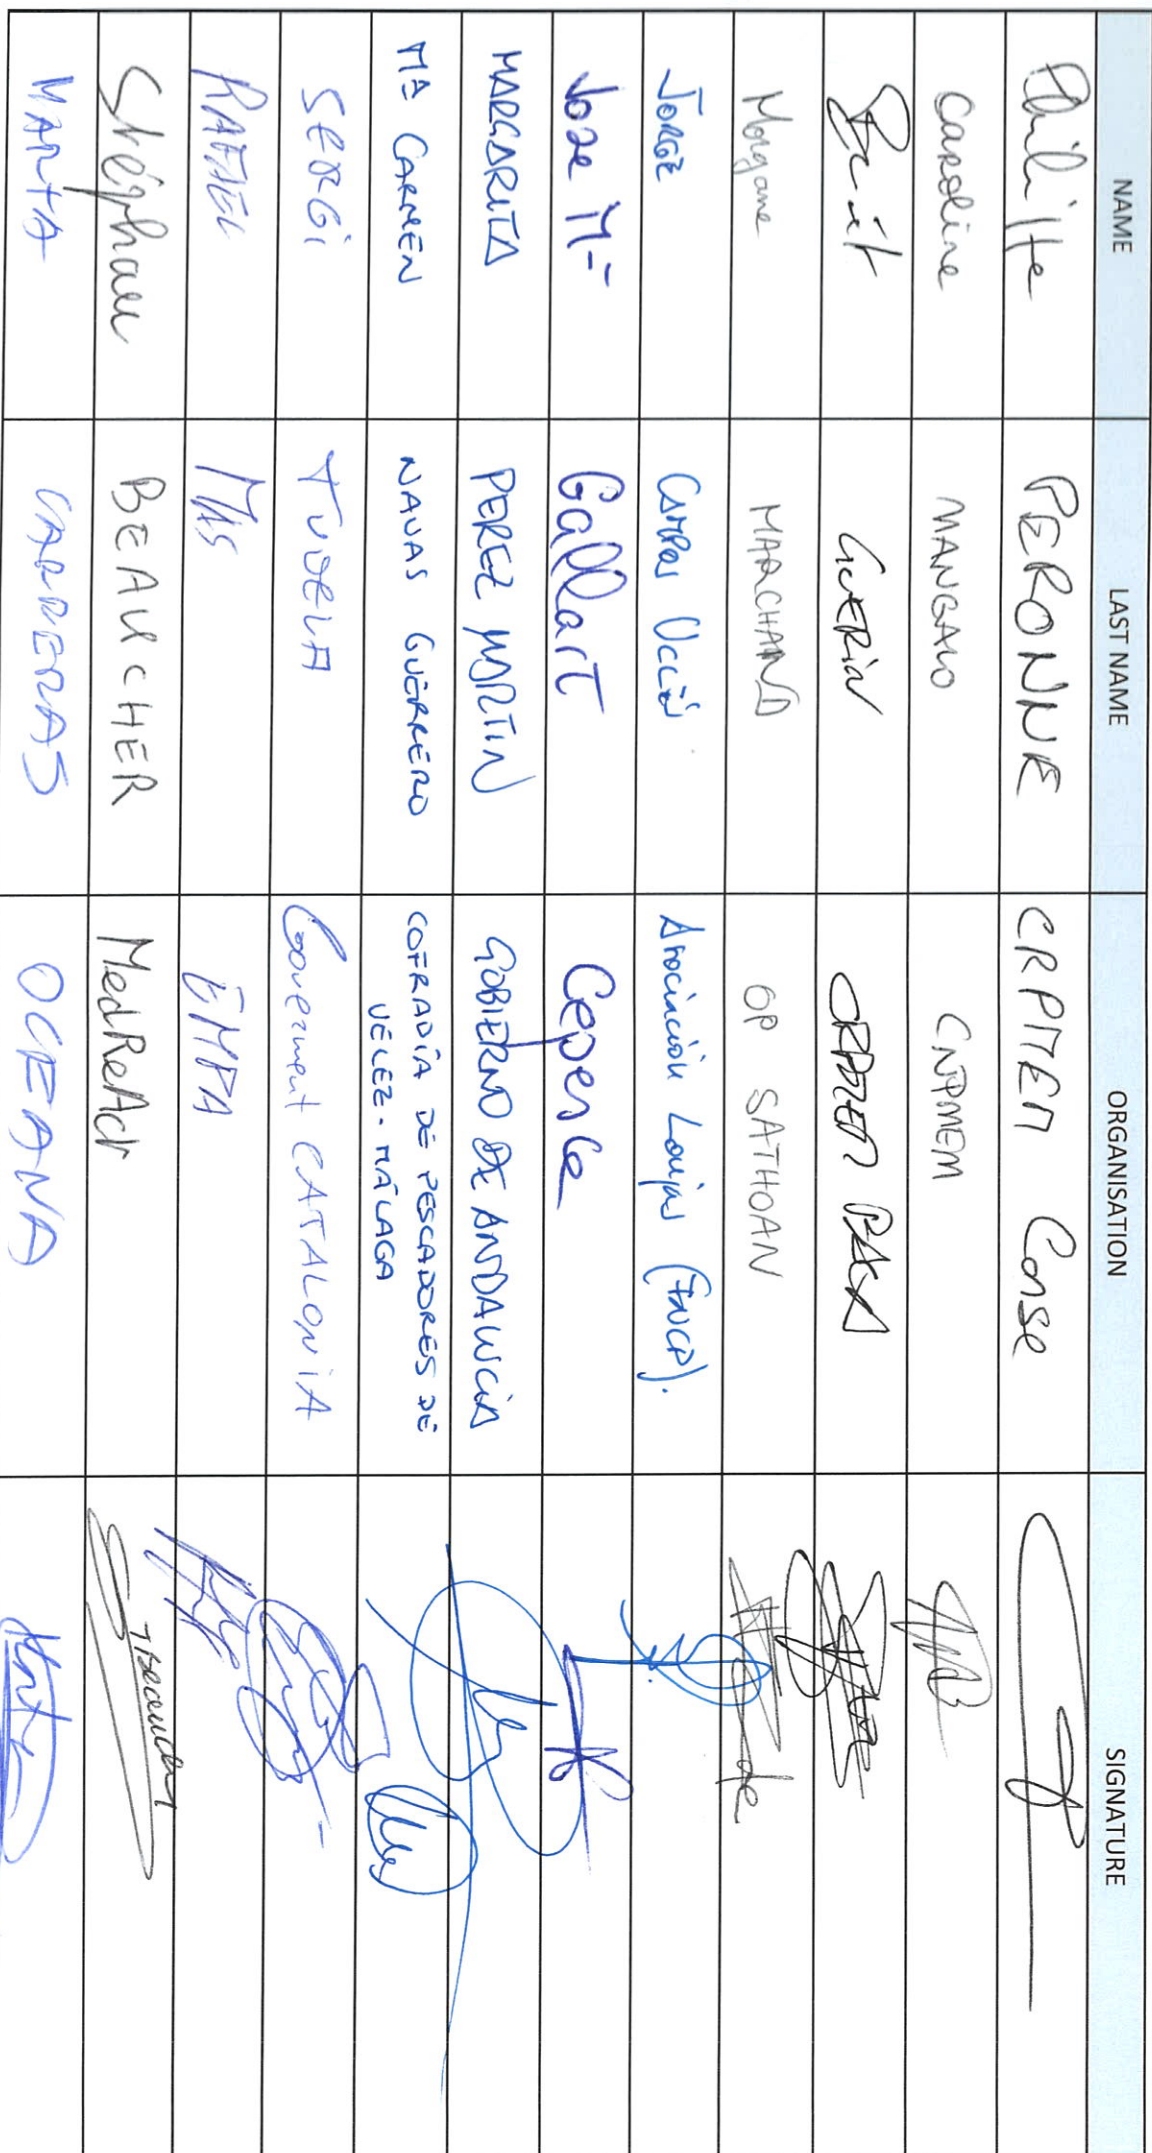 NAME LAST NAME ORGANISATION SIGNATURE
PERONNE CRPMEM Corse
Caroline MANGALO CNPMEM
GUERIN CRPMEM PACA
Morgane MARCHAND OP SATHOAN
JORGE CAMPOS Asociación Lonjas (FNCP).
Jose Mª Gallart Cepesca
MARGARITA PEREZ MARTIN GOBIERNO DE ANDALUCIA
Mª CARMEN NAVAS GUERRERO COFRADÍA DE PESCADORES DE
VÉLEZ-MÁLAGA
SERGI TUDELA Goverment CATALONIA
RAFAEL MAS EMPA
Stéphan BEAUCHER MedReAct
MARTA CARRERAS OCEANA